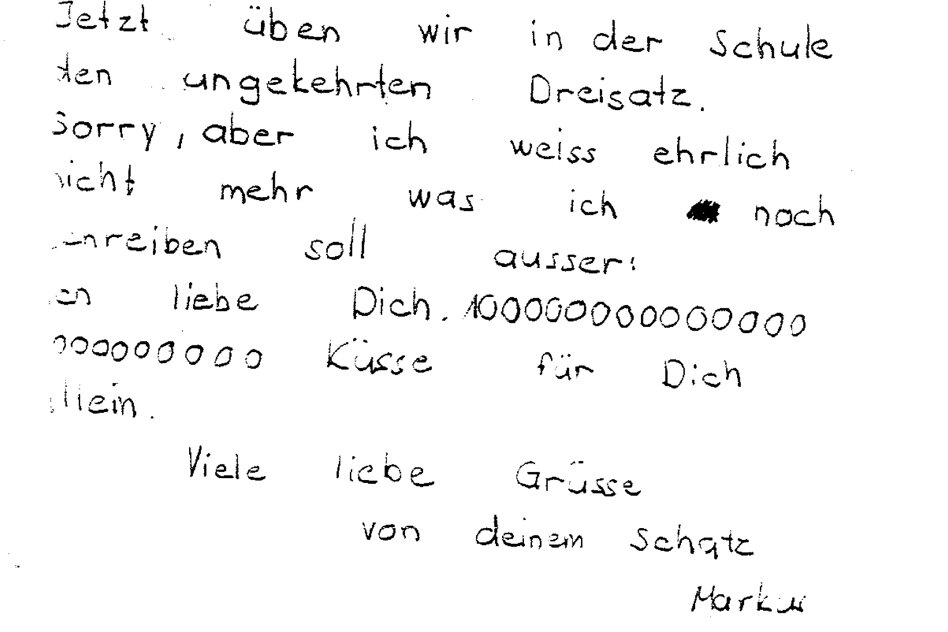 Jetzt üben wir in der Schule
den ungekehrten Dreisatz.
Sorry, aber ich weiss ehrlich
nicht mehr was ich noch
schreiben soll ausser:
Ich liebe Dich. 1000000000000000
000000000 Küsse für Dich
allein.
Viele liebe Grüsse
von deinem Schatz
Markus